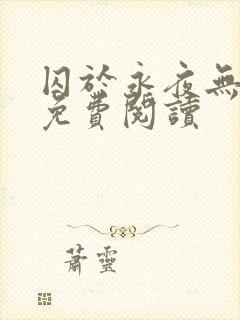 囚於永夜無
免費閱讀
蕭靈